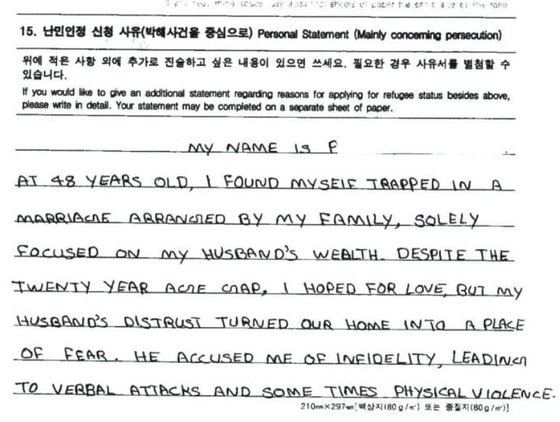 15. 난민인정 신청 사유(박해사건을 중심으로) Personal Statement (Mainly concerning persecution)
위에 적은 사항 외에 추가로 진술하고 싶은 내용이 있으면 쓰세요. 필요한 경우 사유서를 별첨할 수
있습니다.
If you would like to give an additional statement regarding reasons for applying for refugee status besides above,
please write in detail. Your statement may be completed on a separate sheet of paper.
MY NAME IS P
AT 48 YEARS OLD, I FOUND MYSELF TRAPPED IN A
MARRIAGE ARRANGED BY MY FAMILY, SOLELY
FOCUSED ON MY HUSBAND'S WEALTH. DESPITE THE
TWENTY YEAR AGE GAP, I HOPED FOR LOVE, BUT MY
HUSBAND'S DISTRUST TURNED OUR HOME INTO A PLACE
OF FEAR. HE ACCUSED ME OF INFIDELITY, LEADING
TO VERBAL ATTACKS AND SOME TIMES PHYSICAL VIOLENCE.
210㎜×297㎜[백상지(80g/㎡) 또는 중질지(80g/㎡)]